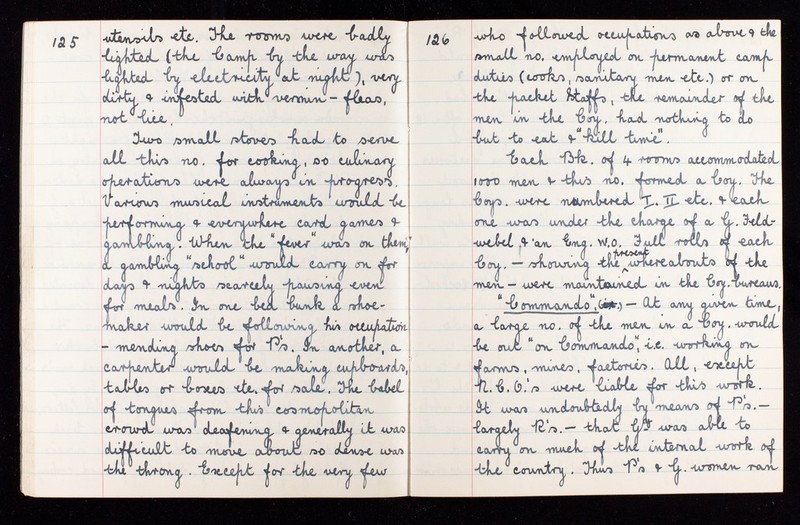 125
utensils etc. The rooms were badly
lighted (the Camp by the way was
lighted by electricity at night), very
dirty & infested with vermin – fleas,
not lice.
Two small stoves had to serve
all this no. for cooking, so culinary
operations were always in progress.
Various musical instruments would be
performing & everywhere card games &
gambling. When the "fever" was on them,
a gambling "school" would carry on for
days & nights scarcely pausing even
for meals. In one bed bunk a shoe-
maker would be following his occupation
– mending shoes for P's. In another, a
carpenter would be making cupboards,
tables or boxes etc. for sale. The babel
of tongues from this cosmopolitan
crowd was deafening & generally it was
difficult to move about so dense was
the throng. Except for the very few
126
who followed occupations as above & the
small no. employed on permanent camp
duties (cooks, sanitary men etc.) or on
the packet staffs, the remainder of the
men in the Coy. had nothing to do
but to eat & "kill time".
Each Bk. of 4 rooms accommodated
1000 men & this no. formed a Coy. The
Coys. were numbered I. II etc. & each
one was under the charge of a G. Feld-
webel & an Eng. W.O. Full rolls of each
Coy. – showing the present whereabouts of the
men – were maintained in the Coy. bureaus.
"Commando". – At any given time,
a large no. of the men in a Coy. would
be out "on Commando", i.e. working on
farms, mines, factories. All, except
N.C.O.'s were liable for this work.
It was undoubtedly by means of P's. –
largely R's. – that Gy was able to
carry on much of the internal work of
the country. Thus P's & G. women ran